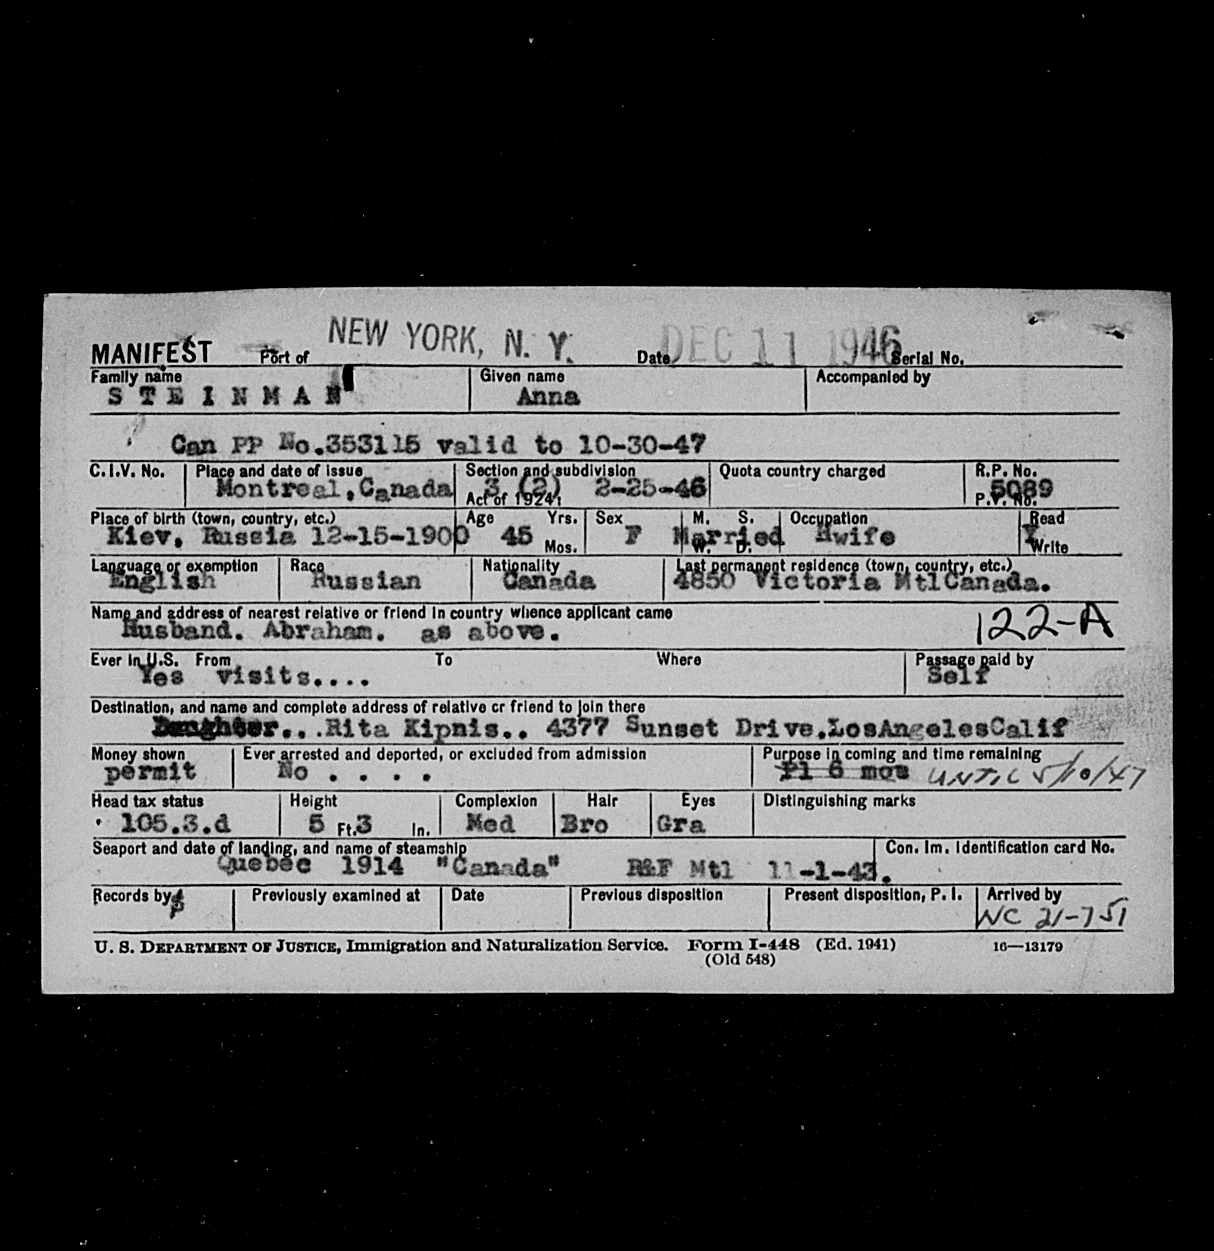 NEW YORK, N. Y. DEC 11 1946
MANIFEST Port of Date Serial No.
Family name Given name Accompanied by
S T E I N M A N Anna
Can PP No.353115 valid to 10-30-47
C.I.V. No. Place and date of issue Section and subdivision Quota country charged R.P. No.
Montreal,Canada 3 (2) 2-25-46 5089
Act of 1924: P.V. No.
Place of birth (town, country, etc.) Age Yrs. Sex M. S. Occupation Read
Kiev, Russia 12-15-1900 45 F Married Hwife
Mos. W. D. Write
Language or exemption Race Nationality Last permanent residence (town, country, etc.)
English Russian Canada 4850 Victoria MtlCanada.
Name and address of nearest relative or friend in country whence applicant came
Husband. Abraham. as above. 122-A
Ever in U.S. From To Where Passage paid by
Yes visits.... Self
Destination, and name and complete address of relative or friend to join there
Daughter...Rita Kipnis.. 4377 Sunset Drive.LosAngelesCalif
Money shown Ever arrested and deported, or excluded from admission Purpose in coming and time remaining
permit No . . . . Pl 6 mos UNTIL 5/10/47
Head tax status Height Complexion Hair Eyes Distinguishing marks
105.3.d 5 Ft. 3 In. Med Bro Gra
Seaport and date of landing, and name of steamship Con. Im. Identification card No.
Quebec 1914 "Canada" R&F Mtl 11-1-43.
Records by Previously examined at Date Previous disposition Present disposition, P. I. Arrived by
NC 21-751
U. S. DEPARTMENT OF JUSTICE, Immigration and Naturalization Service. Form I-448 (Ed. 1941) 16—13179
(Old 548)